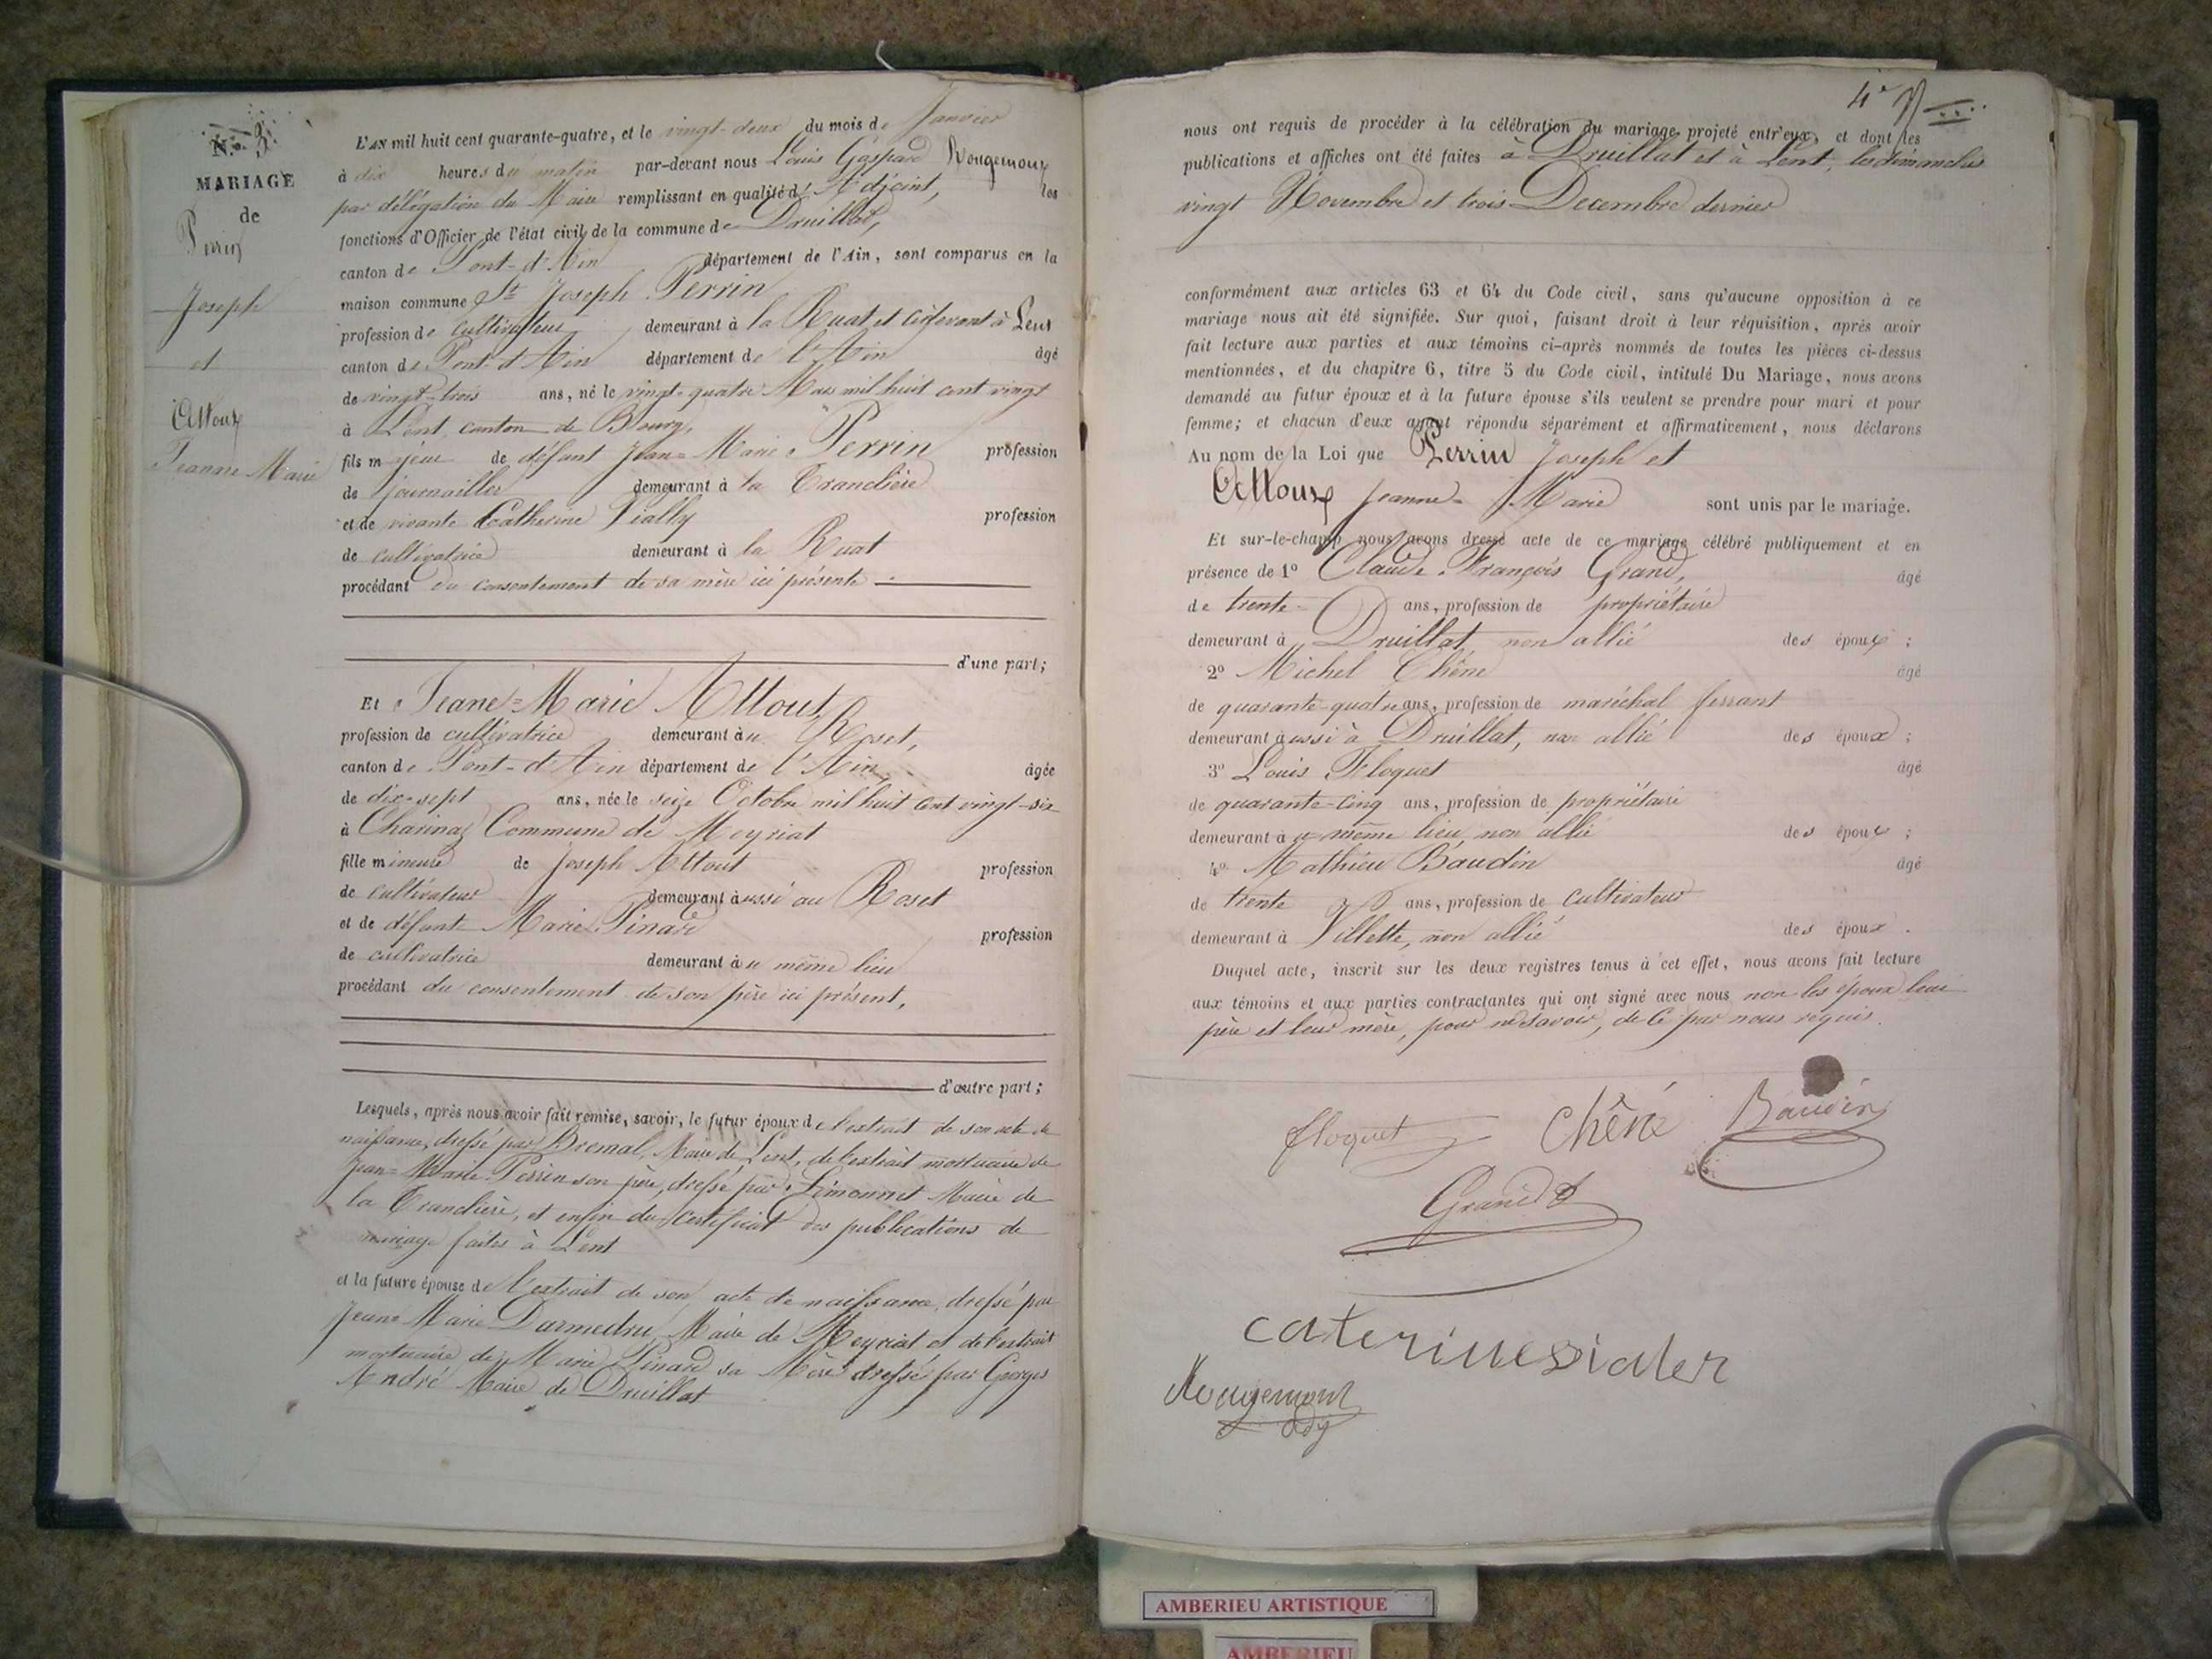 No. 3.
MARIAGE
de
Perrin
Joseph
et
Attoux
Jeanne Marie
L'AN mil huit cent quarante-quatre, et le vingt-deux du mois de Janvier
à dix heures du matin par-devant nous Louis Gaspard Rougemont
par délégation du Maire remplissant en qualité d'Adjoint, les
fonctions d'Officier de l'état civil de la commune de Druillat,
canton de Pont-d'Ain département de l'Ain, sont comparus en la
maison commune St Joseph Perrin
profession de cultivateur demeurant à la Ruat et ci-devant à Lent
canton de Pont-d'Ain département de l'Ain âgé
de vingt-trois ans, né le vingt-quatre Mai mil huit cent vingt
à Lent, canton de Bourg,
fils majeur de défunt Jean-Marie Perrin profession
de journaillier demeurant à la Tranclière
et de vivante Catherine Vially profession
de cultivatrice demeurant à la Ruat
procédant du consentement de sa mère ici présente
d'une part;
Et Jeane-Marie Attout,
profession de cultivatrice demeurant au Roset,
canton de Pont-d'Ain département de l'Ain, âgée
de dix-sept ans, née le seize Octobre mil huit cent vingt-six
à Charinaz Commune de Meyriat
fille mineure de Joseph Attout profession
de cultivateur demeurant aussi au Roset
et de défunte Marie Pinard profession
de cultivatrice demeurant au même lieu
procédant du consentement de son père ici présent,
d'autre part;
Lesquels, après nous avoir fait remise, savoir, le futur époux de l'extrait de son acte de
naissance, dressé par Bremal, Maire de Lent, de l'extrait mortuaire de
Jean-Marie Perrin son père, dressé par Limonnet Maire de
la Tranclière, et enfin du certificat des publications de
mariage faites à Lent
et la future épouse de l'extrait de son acte de naissance, dressé par
Jeune Marie Darmedru Maire de Meyriat et de l'extrait
mortuaire de Marie Pinard sa Mère dressé par Georges
André Maire de Druillat
4e
nous ont requis de procéder à la célébration du mariage projeté entr'eux, et dont les
publications et affiches ont été faites à Druillat et à Lent, les dimanches
vingt Novembre et trois Decembre dernier
conformément aux articles 63 et 64 du Code civil, sans qu'aucune opposition à ce
mariage nous ait été signifiée. Sur quoi, faisant droit à leur réquisition, après avoir
fait lecture aux parties et aux témoins ci-après nommés de toutes les pièces ci-dessus
mentionnées, et du chapitre 6, titre 5 du Code civil, intitulé Du Mariage, nous avons
demandé au futur époux et à la future épouse s'ils veulent se prendre pour mari et pour
femme; et chacun d'eux ayant répondu séparément et affirmativement, nous déclarons
Au nom de la Loi que Perrin Joseph et
Attoux Jeanne-Marie sont unis par le mariage.
Et sur-le-champ nous avons dressé acte de ce mariage célébré publiquement et en
présence de 1º Claude-François Grand, âgé
de trente- ans, profession de propriétaire
demeurant à Druillat, non allié des époux ;
2º Michel Chêne âgé
de quarante-quatre ans, profession de maréchal ferrant
demeurant aussi à Druillat, non allié des époux ;
3º Louis Floquet âgé
de quarante-cinq ans, profession de propriétaire
demeurant au même lieu, non allié des époux ;
4º Mathieu Baudin âgé
de trente ans, profession de cultivateur
demeurant à Villette, non allié des époux .
Duquel acte, inscrit sur les deux registres tenus à cet effet, nous avons fait lecture
aux témoins et aux parties contractantes qui ont signé avec nous non les époux leur
père et leur mère, pour ne savoir, de ce par nous requis.
floquet chêne Baudin
Grand
caterinevialer
Rougemont
adj
AMBERIEU ARTISTIQUE
AMBERIEU